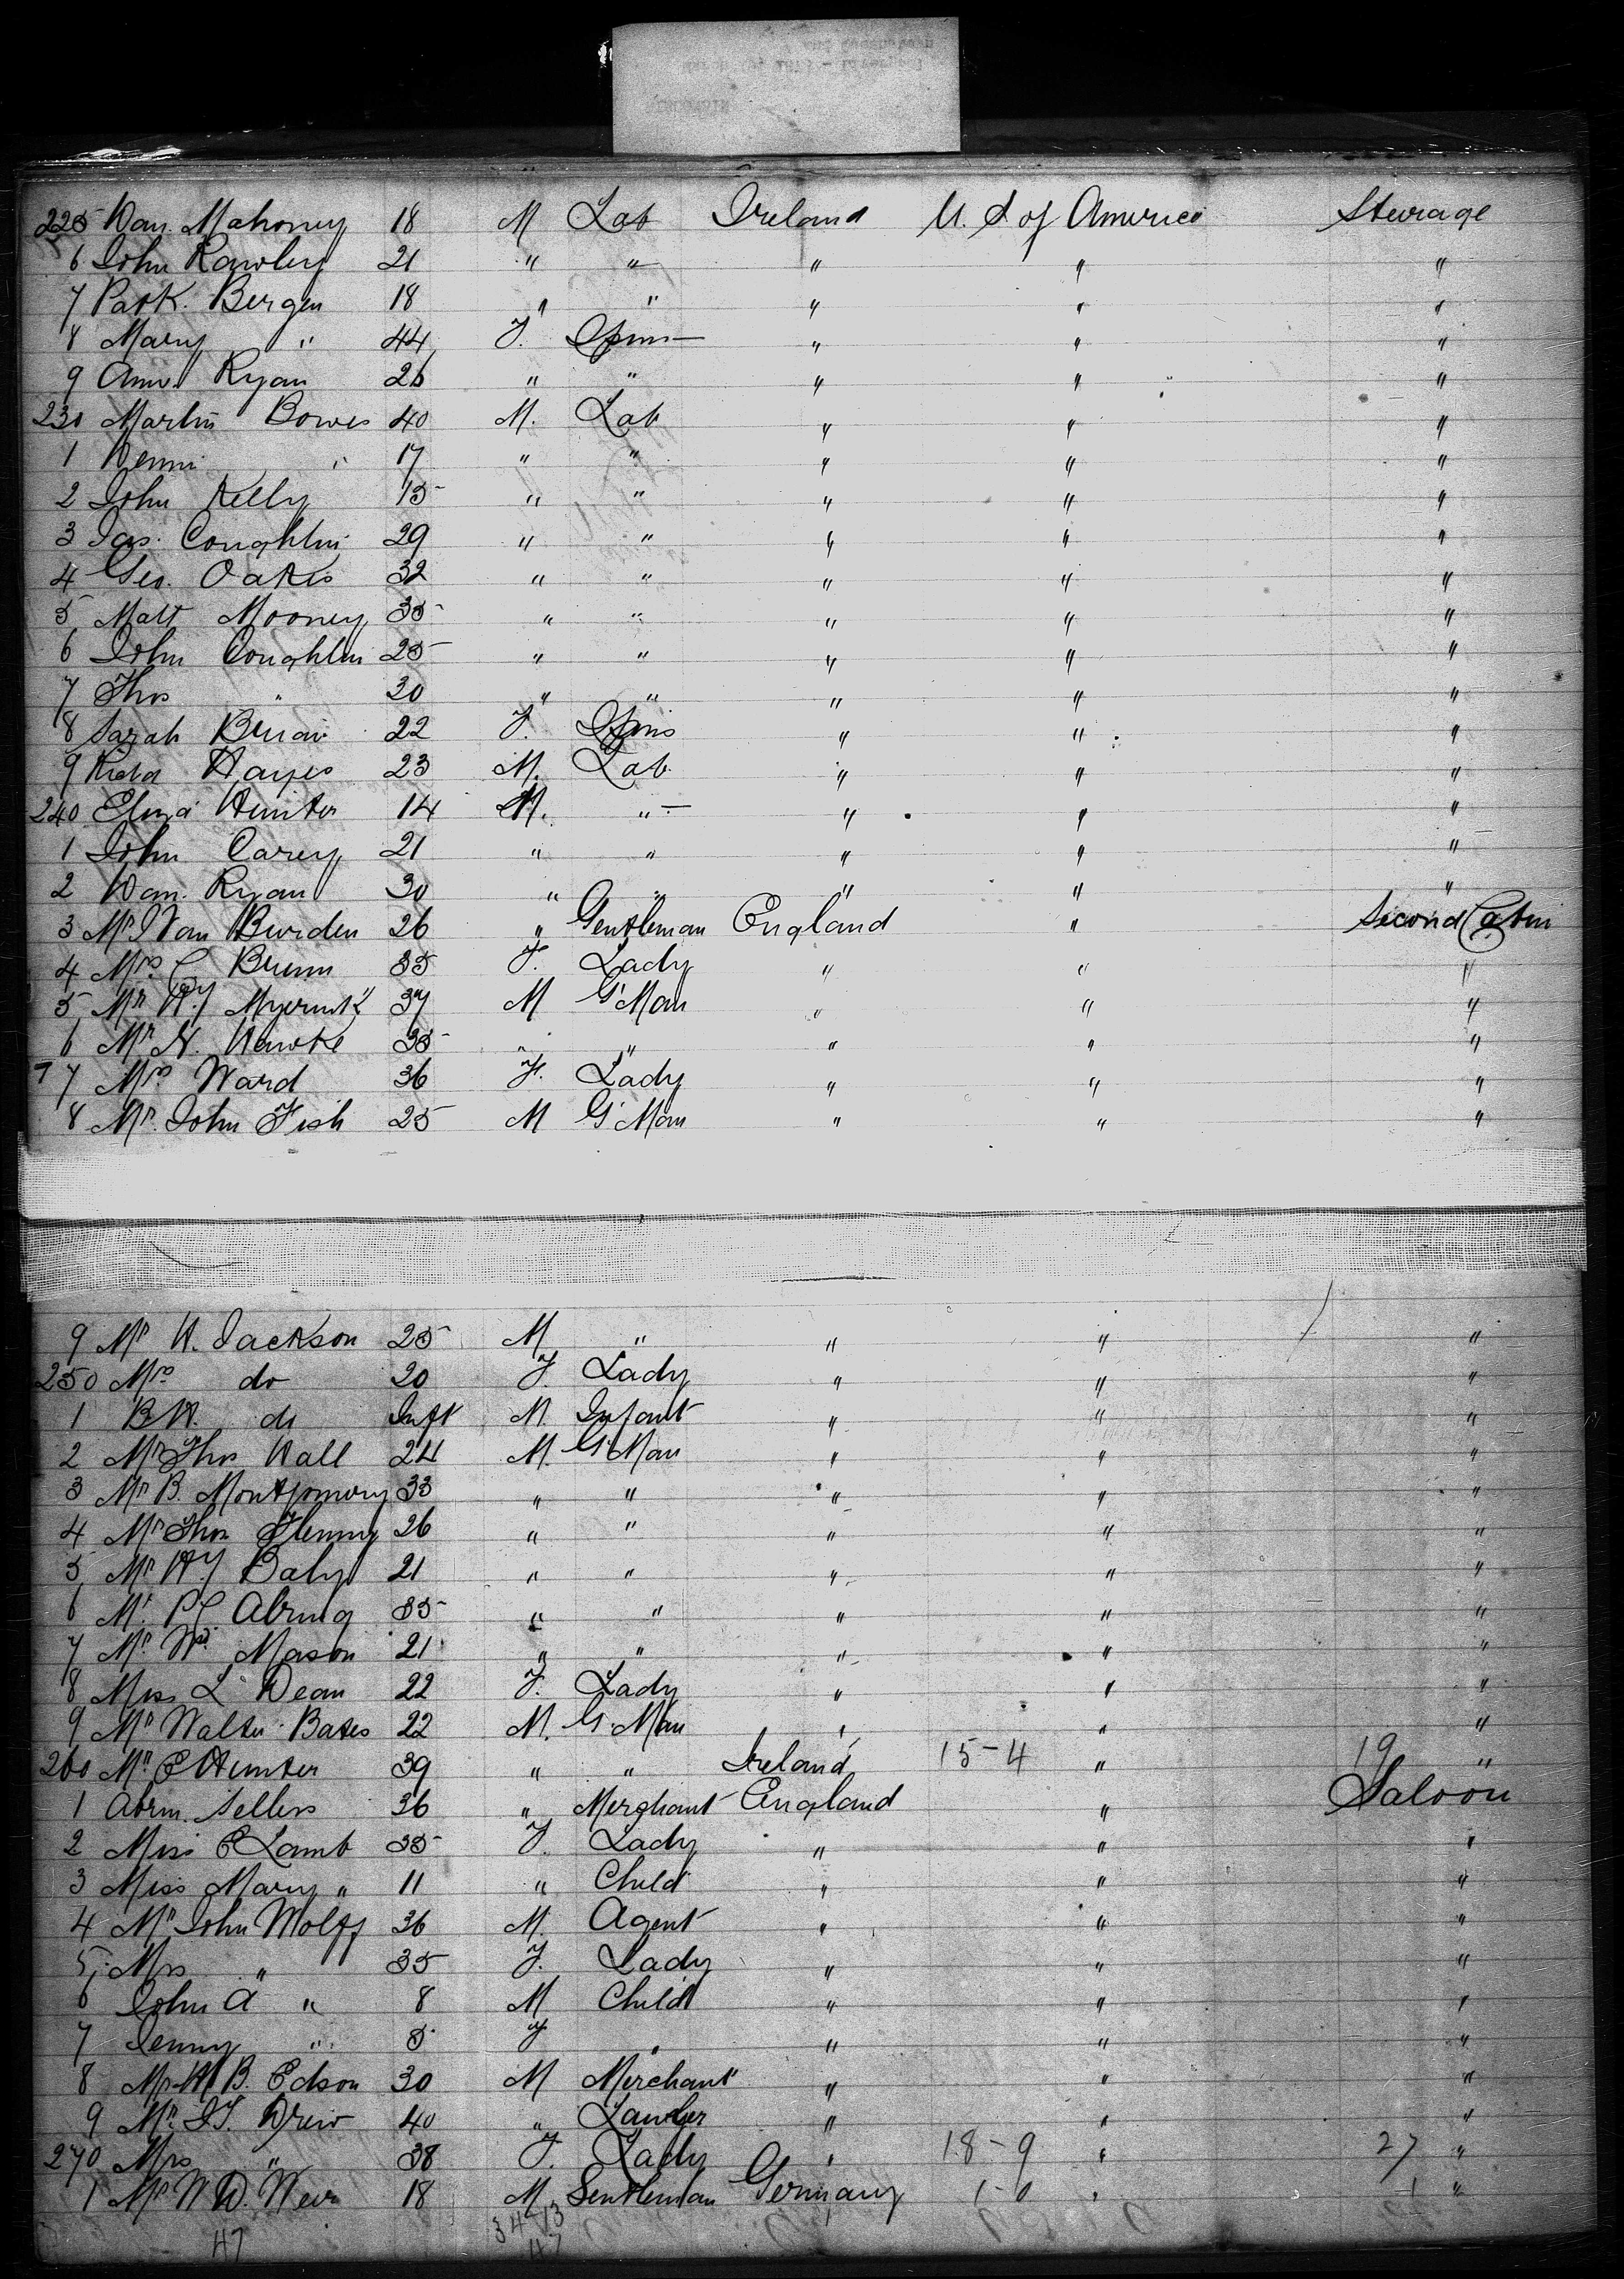 225 Dan. Mahoney 18 M Lab Ireland U. S of America Steerage
6 John Rawley 21 " " " " "
7 Patk. Bergen 18 " " " " "
8 Mary " 44 F. Spins " " "
9 Ann Ryan 26 " " " " "
230 Martin Bowes 40 M. Lab " " "
1 Denni " 17 " " " " "
2 John Kelly 15 " " " " "
3 Jas. Coughlin 29 " " " " "
4 Geo. Oakes 32 " " " " "
5 Matt Mooney 35 " " " " "
6 John Coughlin 25 " " " " "
7 Thos " 30 " " " " "
8 Sarah 22 F. Spins " " "
9 Richd Hayes 23 M. Lab " " "
240 Eliza Hunter 14 M. " " " "
1 John Carey 21 " " " " "
2 Dan. Ryan 30 " " " " "
3 Mr Dan Burden 26 " Gentleman England " Second Cabin
4 Mrs. C Brunn 35 F. Lady " " "
5 Mr Hy 37 M G'Man " " "
6 Mr N. Hawke 35 " " " " "
7 Mrs Ward 36 F. Lady " " "
8 Mr. John Fish 25 M G'Man " " "
9 Mr H. Jackson 25 M " " " "
250 Mrs do 20 F Lady " " "
1 B H. do Inft M. Infant " " "
2 Mr Thos Hall 24 M. G'Man " " "
3 Mr B. Montgomery 33 " " " " "
4 Mr Thos Flemmy 26 " " " " "
5 Mr Hy Baly 21 " " " " "
6 Mr. P C 35 " " " " "
7 Mr. Wm. Mason 21 " " " " "
8 Miss L Dean 22 F. Lady " " "
9 Mr Walter Bates 22 M. G'Man " " "
260 Mr E Hunter 39 " " Ireland 15-4 " 19 "
1 Abrm. Sellers 36 " Merchant England " Saloon
2 Miss E Lamb 35 F. Lady " " "
3 Miss Mary " 11 " Child " " "
4 Mr John Wolff 36 M. Agent " " "
5 Mrs " 35 F. Lady " " "
6 John A " 8 M Child " " "
7 Jenny " 5 F " " " "
8 Mr W B. Edson 30 M Merchant " " "
9 Mr. J T. Drew 40 " Lawyer " " "
270 Mrs " 38 F. Lady " 18-9 " 27 "
1 Mr W D. Weir 18 M Gentleman Germany 1-0 " 1 "
47 34-13
47